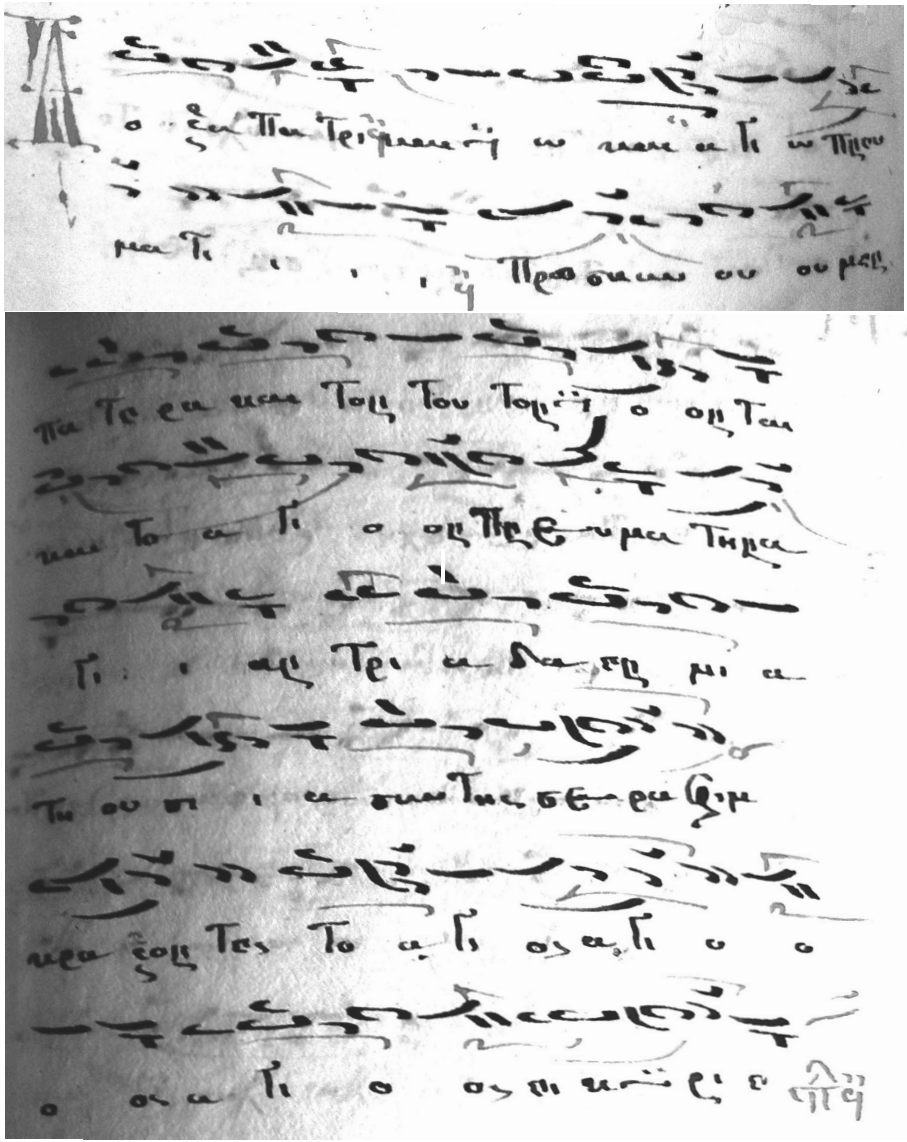 Δο ξα Πα τρι και ω και α γι ω πνευ
μα τι ι ι ι προσκυν ου ου μεν
πα τε ρα και τον του τον ο ον ται
και το α γι ο ον πνε υμα την α
γι ι αν τρι α δα εν μι α
τη ου σι ι α συν της σε ρα φιμ
κρα ξον τες το α γι ος α γι ο ο
ο ος α γι ο ος ει κυ ρι ε